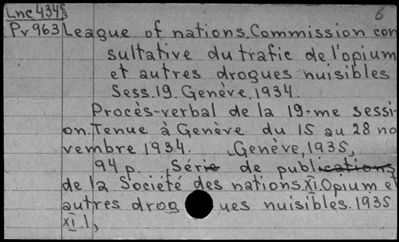 Lnc 434 c/3 6
Pv 963 League of nations. Commission con
sultative du trafic de l'opium
et autres drogues nuisibles
Sess. 19. Genève, 1934.
Procès-verbal de la 19-me sessi-
on. Tenue à Genève du 15 au 28 no
vembre 1934. Genève, 1935,
94 p. Série de publications
de la Société des nations. XI. Opium et
autres drog ues nuisibles. 1935
XI. 1.,